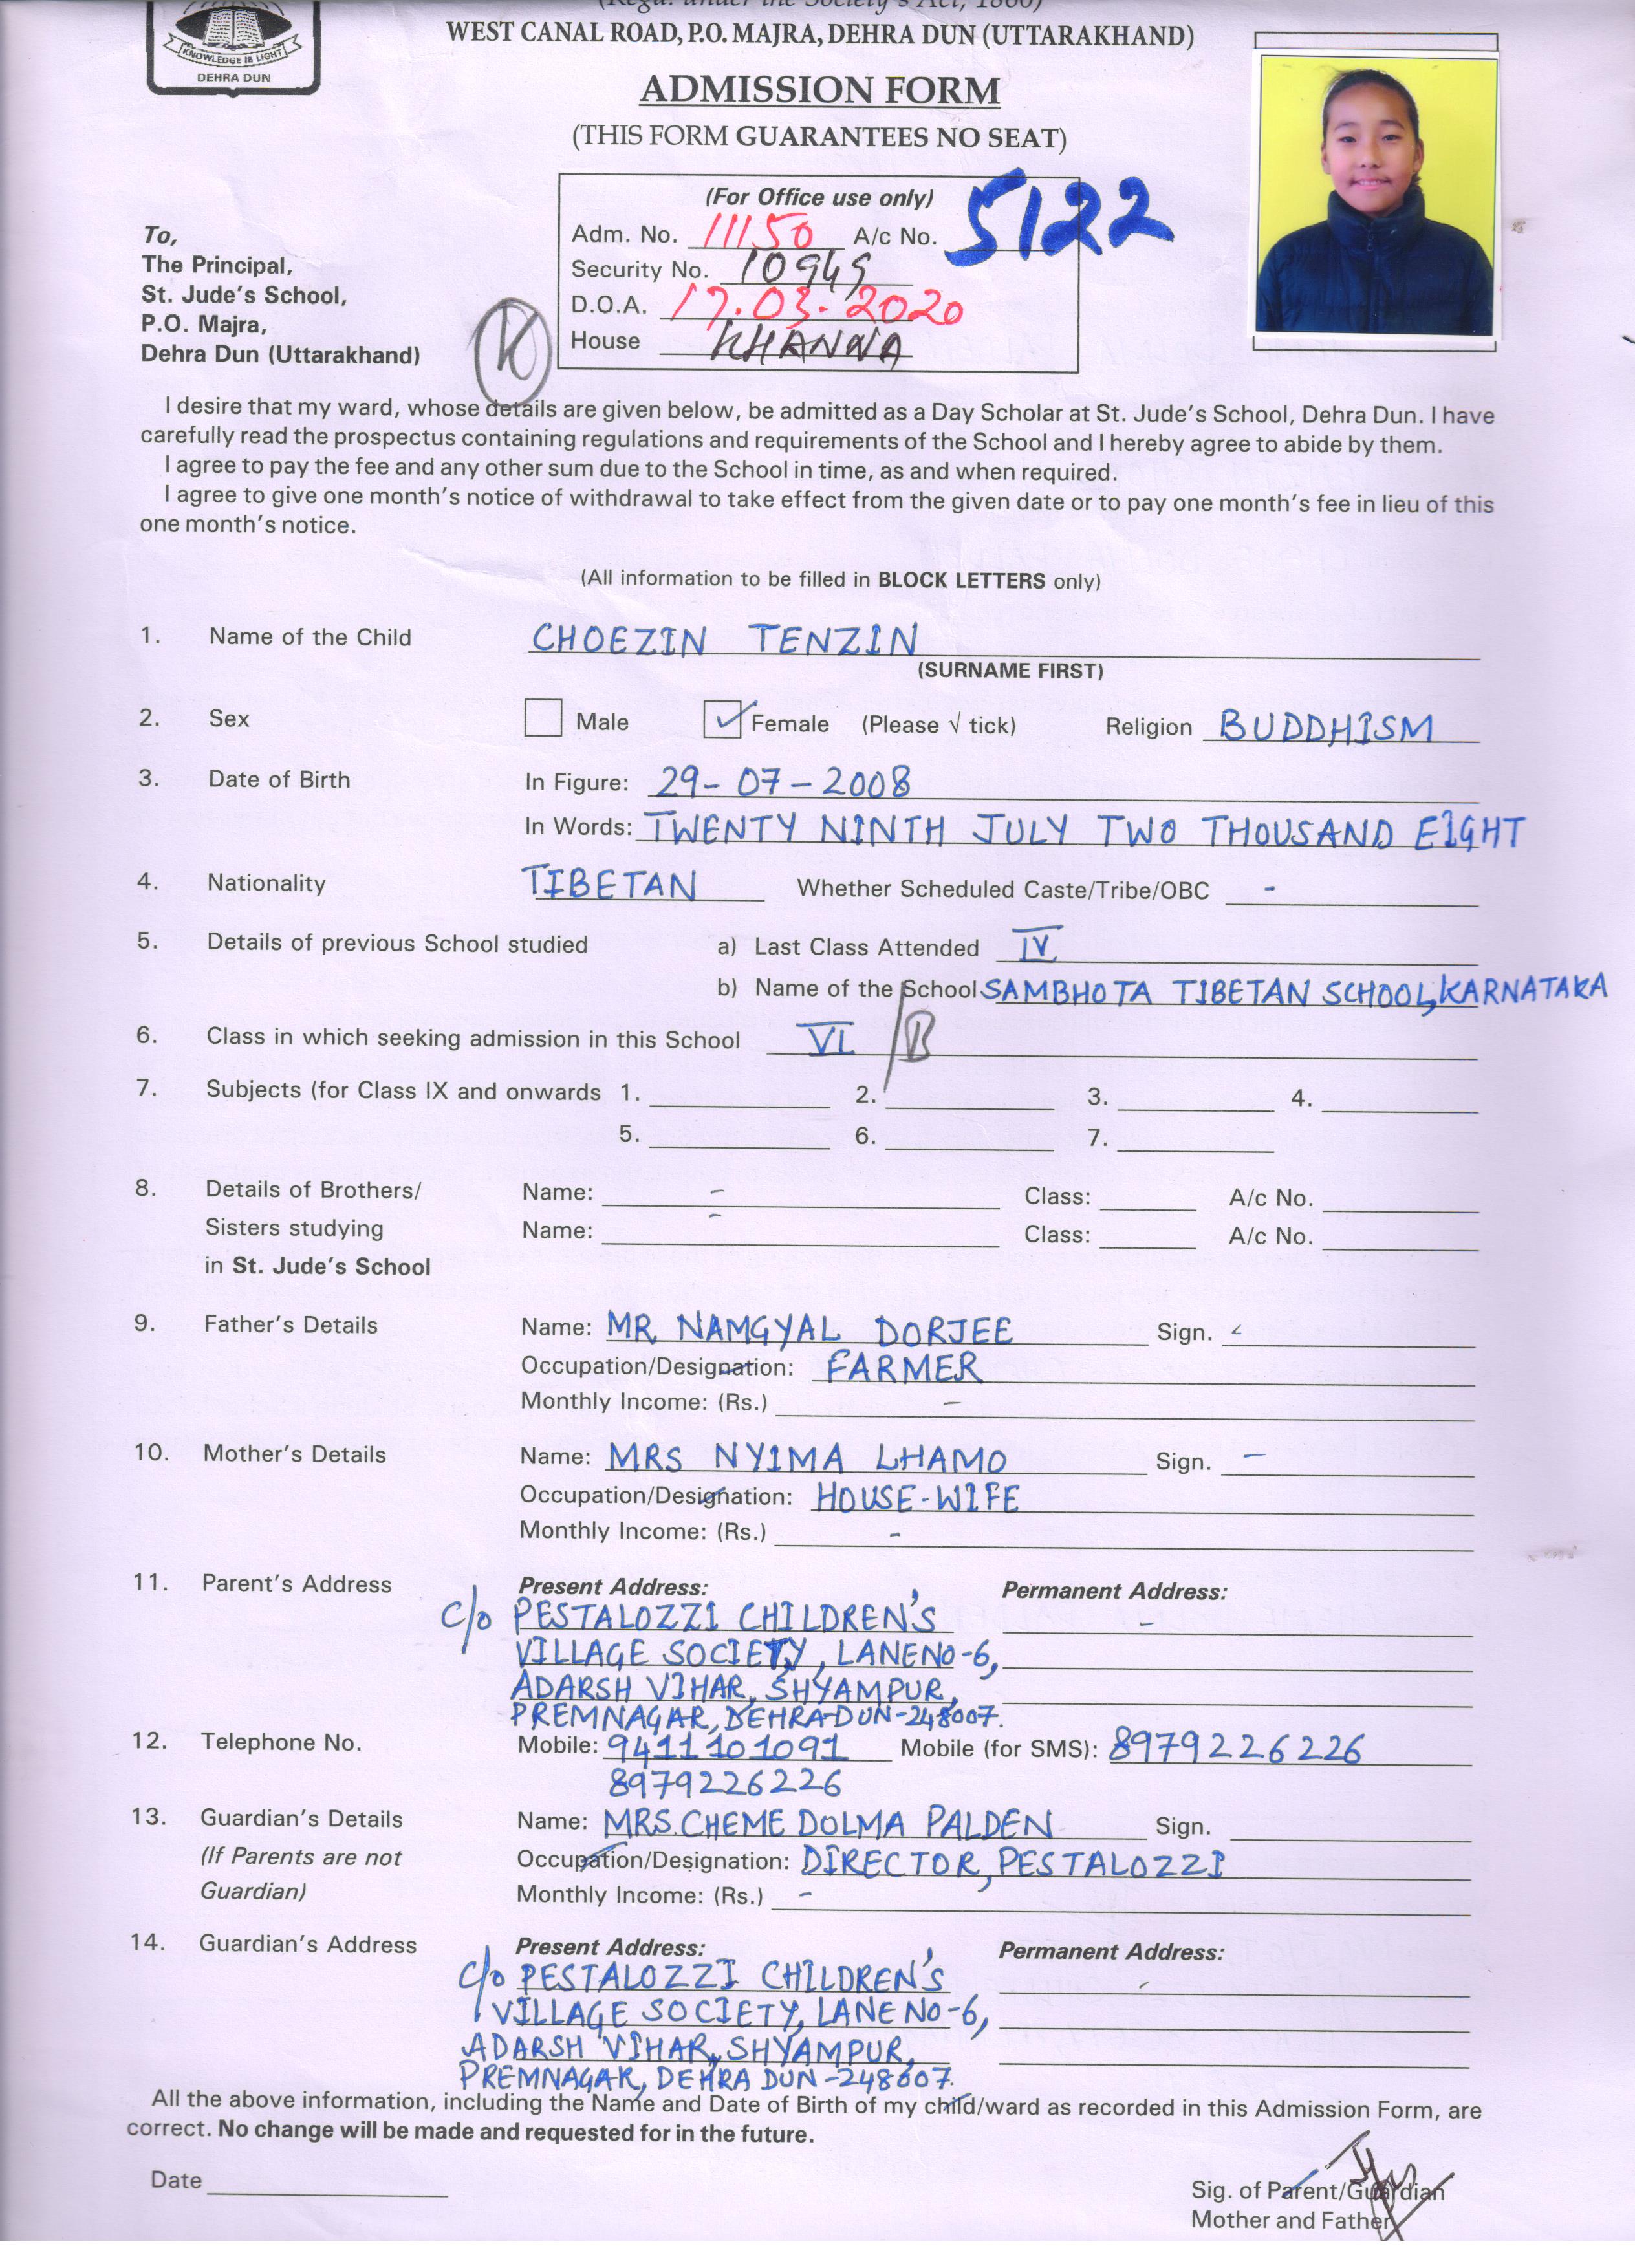 (Regd. under the Society's Act, 1860)
WEST CANAL ROAD, P.O. MAJRA, DEHRA DUN (UTTARAKHAND)
KNOWLEDGE IS LIGHT
DEHRA DUN
ADMISSION FORM
(THIS FORM GUARANTEES NO SEAT)
(For Office use only)
Adm. No. 11150 A/c No. 5122
Security No. 10945
D.O.A. 17.03.2020
House KHANNA
K
To,
The Principal,
St. Jude's School,
P.O. Majra,
Dehra Dun (Uttarakhand)
I desire that my ward, whose details are given below, be admitted as a Day Scholar at St. Jude's School, Dehra Dun. I have
carefully read the prospectus containing regulations and requirements of the School and I hereby agree to abide by them.
I agree to pay the fee and any other sum due to the School in time, as and when required.
I agree to give one month's notice of withdrawal to take effect from the given date or to pay one month's fee in lieu of this
one month's notice.
(All information to be filled in BLOCK LETTERS only)
1. Name of the Child CHOEZIN TENZIN
(SURNAME FIRST)
2. Sex Male ✓ Female (Please √ tick) Religion BUDDHISM
3. Date of Birth In Figure: 29-07-2008
In Words: TWENTY NINTH JULY TWO THOUSAND EIGHT
4. Nationality TIBETAN Whether Scheduled Caste/Tribe/OBC -
5. Details of previous School studied a) Last Class Attended IV
b) Name of the School SAMBHOTA TIBETAN SCHOOL, KARNATAKA
6. Class in which seeking admission in this School VI / B
7. Subjects (for Class IX and onwards 1. 2. 3. 4.
5. 6. 7.
8. Details of Brothers/ Name: - Class: A/c No.
Sisters studying Name: - Class: A/c No.
in St. Jude's School
9. Father's Details Name: MR NAMGYAL DORJEE Sign. -
Occupation/Designation: FARMER
Monthly Income: (Rs.) -
10. Mother's Details Name: MRS NYIMA LHAMO Sign. -
Occupation/Designation: HOUSE-WIFE
Monthly Income: (Rs.) -
11. Parent's Address Present Address: Permanent Address:
C/o PESTALOZZI CHILDREN'S -
VILLAGE SOCIETY, LANE NO-6,
ADARSH VIHAR, SHYAMPUR,
PREMNAGAR, DEHRADUN-248007.
12. Telephone No. Mobile: 9411101091 Mobile (for SMS): 8979226226
8979226226
13. Guardian's Details Name: MRS. CHEME DOLMA PALDEN Sign.
(If Parents are not Occupation/Designation: DIRECTOR, PESTALOZZI
Guardian) Monthly Income: (Rs.) -
14. Guardian's Address Present Address: Permanent Address:
C/o PESTALOZZI CHILDREN'S -
VILLAGE SOCIETY, LANE NO-6,
ADARSH VIHAR, SHYAMPUR,
PREMNAGAR, DEHRA DUN-248007.
All the above information, including the Name and Date of Birth of my child/ward as recorded in this Admission Form, are
correct. No change will be made and requested for in the future.
Date
Sig. of Parent/Guardian
Mother and Father